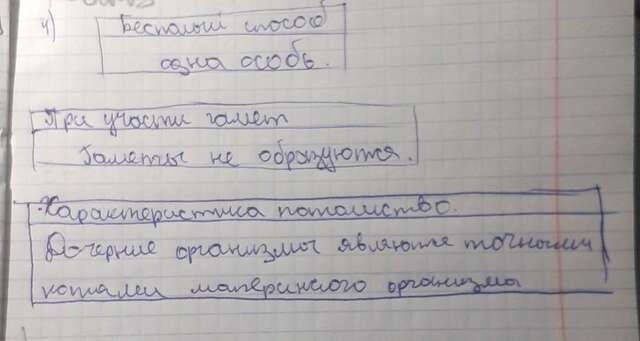 4) Бесполый способ
одна особь.
При участи гамет
Гаметы не образуются.
Характеристика потомство.
Дочерние организмы являются точными
копиями материнского организма